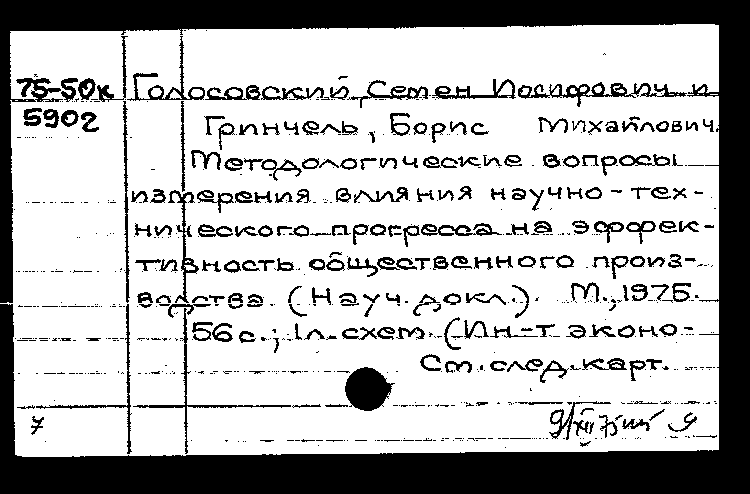 75-50к Голосовский, Семен Иосифович и
5902 Гринчель, Борис Михайлович.
Методологические вопросы
измерения влияния научно-тех-
нического прогресса на эффек-
тивность общественного произ-
водства. (Науч. докл.). М., 1975.
56 с.; 1 л. схем. (Ин-т эконо-
См. след. карт.
7